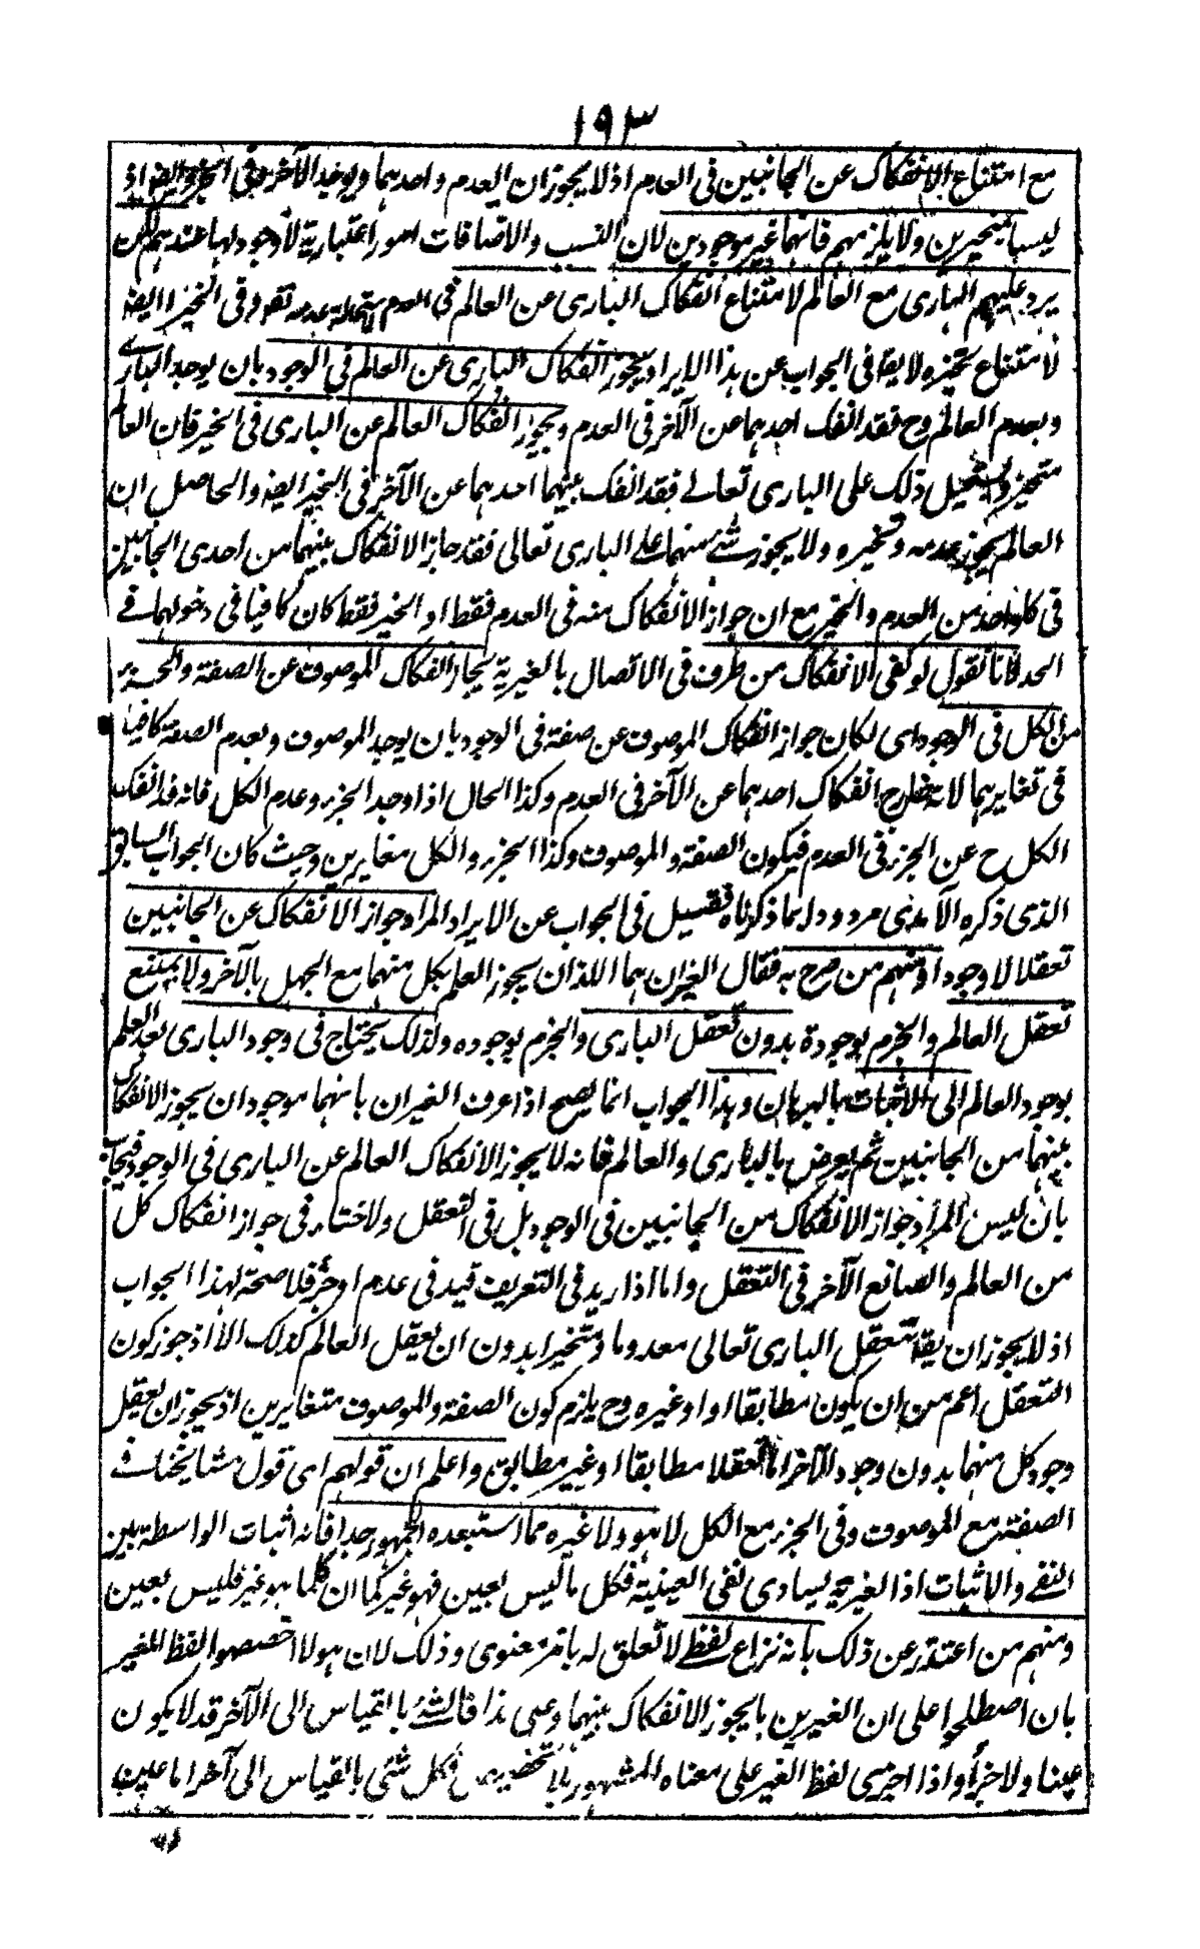 ١٩٣
مع امتناع الانفكاك عن الجانبين فى العدم اذ لا يجوز ان يعدم واحد هما ويوجد الآخر وفى الحيز ايضا اذ
ليسا متحيزين ولا يلزمهم فانهما غير موجودين لان النسب والاضافات امورا عتبارية لا وجود لها عندهم لكن
يرد عليهم البارى مع العالم لامتناع انفكاك البارى عن العالم فى العدم لاستحالة عدمه تقدس وفى التحيز ايضا
لامتناع تحيزه لا يقا فى الجواب عن هذا الايراد يجوز انفكاك البارى عن العالم فى الوجود بان يوجد البارى
ويعدم العالم وح فقد انفك احدهما عن الآخر فى العدم ويجوز انفكاك العالم عن البارى فى الحيز فان العالم
متحيز ويستحيل ذلك على البارى تعالى فقد انفك بينهما احدهما عن الآخر فى التحيز ايضا والحاصل ان
العالم يجوز عدمه وتحيزه ولا يجوز شئ منهما على البارى تعالى فقد جاز الانفكاك بينهما من احدى الجانبين
فى كل واحد من العدم والتحيز مع ان جواز الانفكاك منه فى العدم فقط او الحيز فقط كان كافيا فى دخولهما فى
الحد لانا نقول لو كفى الانفكاك من طرف فى الاتصال بالغيرية لجاز انفكاك الموصوف عن الصفة والجزء
من الكل فى الوجود اى لكان جواز انفكاك الموصوف عن صفة فى الوجود بان يوجد الموصوف ويعدم الصفة كافيا
فى تغايرهما لانه انفكاك احدهما عن الآخر فى العدم وكذا الحال اذا وجد الجزء وعدم الكل فانه قد انفك
الكل ح عن الجزء فى العدم فيكون الصفة والموصوف وكذا الجزء والكل متغايرين وحيث كان الجواب السابق
الذى ذكره الآمدى مردودا بما ذكرناه فقيل فى الجواب عن الايراد المراد جواز الانفكاك عن الجانبين
تعقلا لا وجودا ومنهم من صرح به فقال الغيران هما اللذان يجوز العلم بكل منهما مع الجهل بالآخر ولا يمتنع
تعقل العالم والجزم بوجودة بدون تعقل البارى والجزم بوجوده ولذلك يحتاج فى وجود البارى بعد العلم
بوجود العالم الى الاثبات بالبرهان وهذا الجواب انما يصح اذا عرف الغيران بانهما موجودان يجوز الانفكاك
بينهما من الجانبين ثم يعرض بالبارى والعالم فانه لا يجوز الانفكاك العالم عن البارى فى الوجود فيجاب
بان ليس المراد جواز الانفكاك من الجانبين فى الوجود بل فى التعقل ولا خفاء فى جواز انفكاك كل
من العالم والصانع الآخر فى التعقل واما اذا ريد فى التعريف قيد فى عدم او حيز فلا صحة لهذا الجواب
اذ لا يجوز ان يقا تعقل البارى تعالى معدوما ومتحيزا بدون ان يعقل العالم كذلك الا اذ جوز كون
التعقل اعم من ان يكون مطابقا او وغيره وح يلزم كون الصفة والموصوف متغايرين اذ يجوز ان يعقل
وجود كل منهما بدون وجود الآخر اما تعقلا مطابقا او غير مطابق واعلم ان قولهم اى قول مشايخنا فى
الصفة مع الموصوف وفى الجزء مع الكل لا هو ولا غيره مما استبعده الجمهور جدا فانه اثبات الواسطة بين
النفى والاثبات اذ الغيرية يساوى نفى العينية فكل ما ليس بعين فهو غير كما ان كلما هو غير فليس بعين
ومنهم من اعتذر عن ذلك بانه نزاع لفظى لا تعلق له بامر معنوى وذلك لان هولا خصصوا لفظ الغير
بان اصطلحوا على ان الغيرين ما يجوز الانفكاك بينهما وعلى هذا فالشئ بالقياس الى الآخر قد لا يكون
عينا ولا غيرا واذا اجرى لفظ الغير على معناه المشهور بلا تخصيص فكل شئ بالقياس الى آخر اما عين